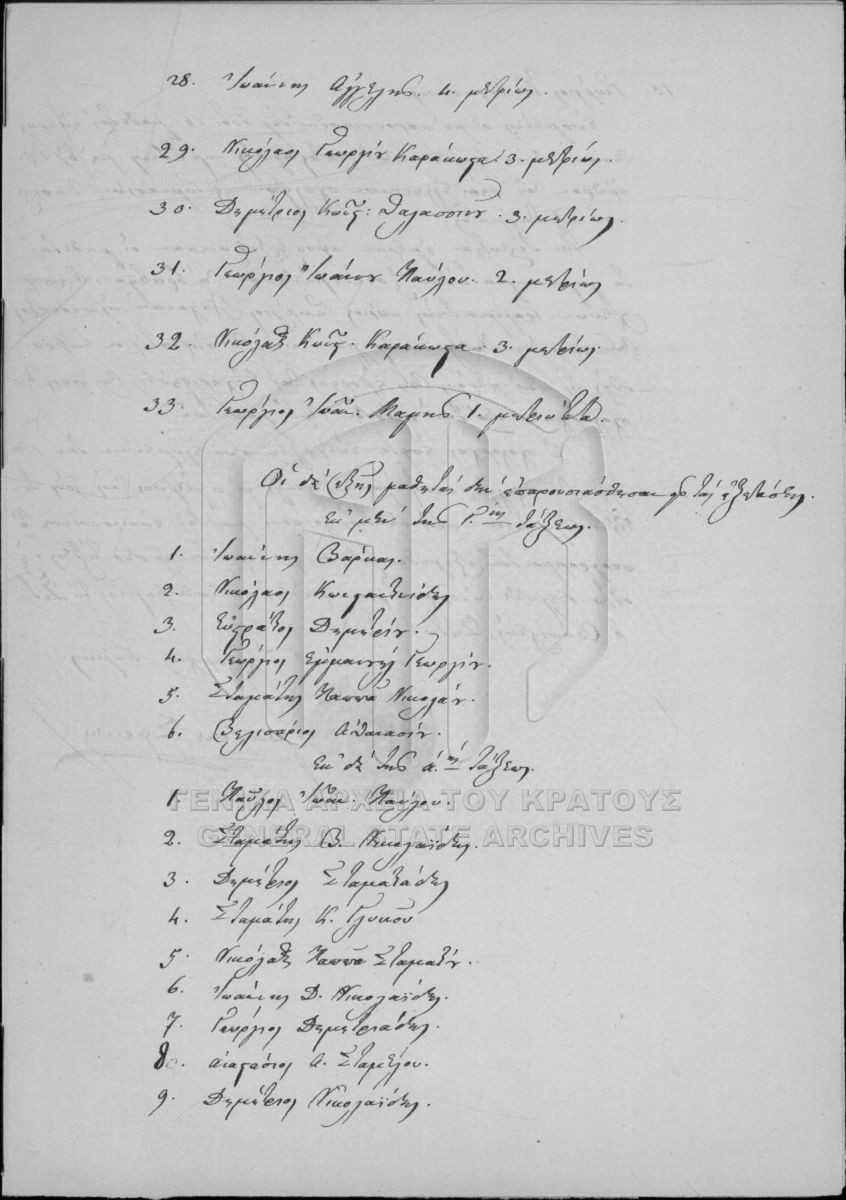 28. Ἰωάννης Ἀγγελῆς. 4. μετρίως.
29. Νικόλαος Γεωργίου Καράκωστα 3. μετρίως.
30. Δημήτριος Κωνστ: Θαλασσινοῦ. 3. μετρίως.
31. Γεώργιος Ἰωάννου Παύλου. 2. μετρίως
32. Νικόλαος Κωνστ. Καράκωστα. 3. μετρίως.
33. Γεώργιος Ἰωάν. Μαμῆς 1. μετριώτατα.
Οἱ δὲ ἑξῆς μαθηταὶ δὲν ἐπαρουσιάσθησαν εἰς τὰς ἐξετάσεις.
Ἐκ μὲν τῆς Γ.ης τάξεως.
1. Ἰωάννης Βάρκας.
2. Νικόλαος Κωνσταντινίδης
3. Εὐστράτιος Δημητρίου.
4. Γεώργιος Ἐμμανουὴλ Γεωργίου.
5. Σταμάτης Παππᾶ Νικολάου.
6. Βελισάριος Ἀθανασίου.
Ἐκ δὲ τῆς ά.ης τάξεως.
1. Παῦλος Ἰωάν. Παύλου.
ΓΕΝΙΚΑ ΑΡΧΕΙΑ ΤΟΥ ΚΡΑΤΟΥΣ
2. Σταμάτης Β. Νικολαΐδης.
GENERAL STATE ARCHIVES
3. Δημήτριος Σταματιάδης
4. Σταμάτης Κ. Γλυκοῦ
5. Νικόλαος Παππᾶ Σταματίου.
6. Ἰωάννης Δ. Νικολαΐδης.
7. Γεώργιος Δημητριάδης.
8. Ἀναστάσιος Α. Σταμέλου.
9. Δημήτριος Νικολαΐδης.